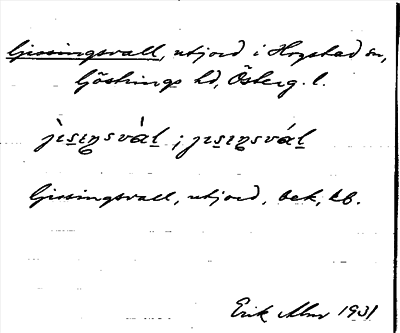 Gissingsvall, utjord i Hogstad sn,
Göstrings hd, Österg. l.
jìsiŋsvàl ; jisiŋsvál
Gissingsvall, utjord, bek, kb.
Erik Abr 1931